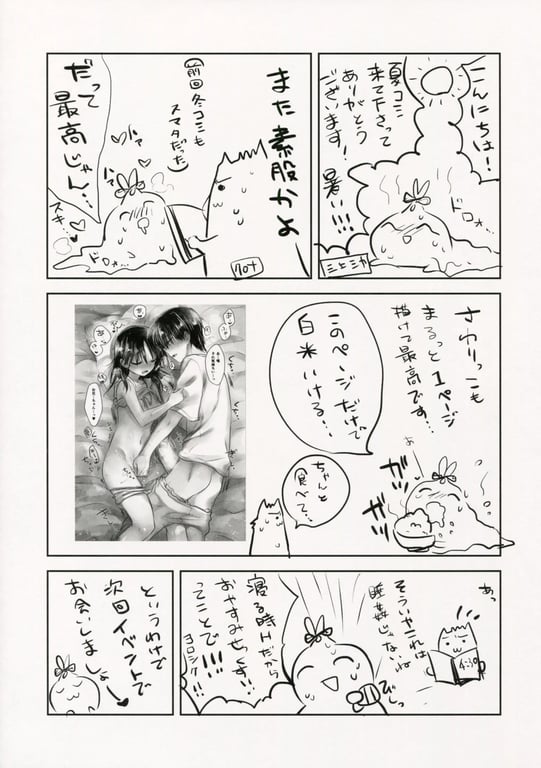 こんにちは!
夏コミ
来て下さって
ありがとう
ございます!
暑い!!!
ドロォ…
ミヒミヤ
また素股かよ
(前回冬コミも
スマタだった)
だって
最高じゃん…
スキ…
ドロォ…
さわりっこも
まるっと1ページ
描けて最高です…
このページだけで
白米いける…
ちゃんと
食べて…
ガッガッ
あっ
そういやこれは
睡姦じゃないね
びしっ
寝る時Hだから
おやすみせっくす!!
ってことで!!!
ヨロシク!!
というわけで
次回イベントで
お会いしましょ